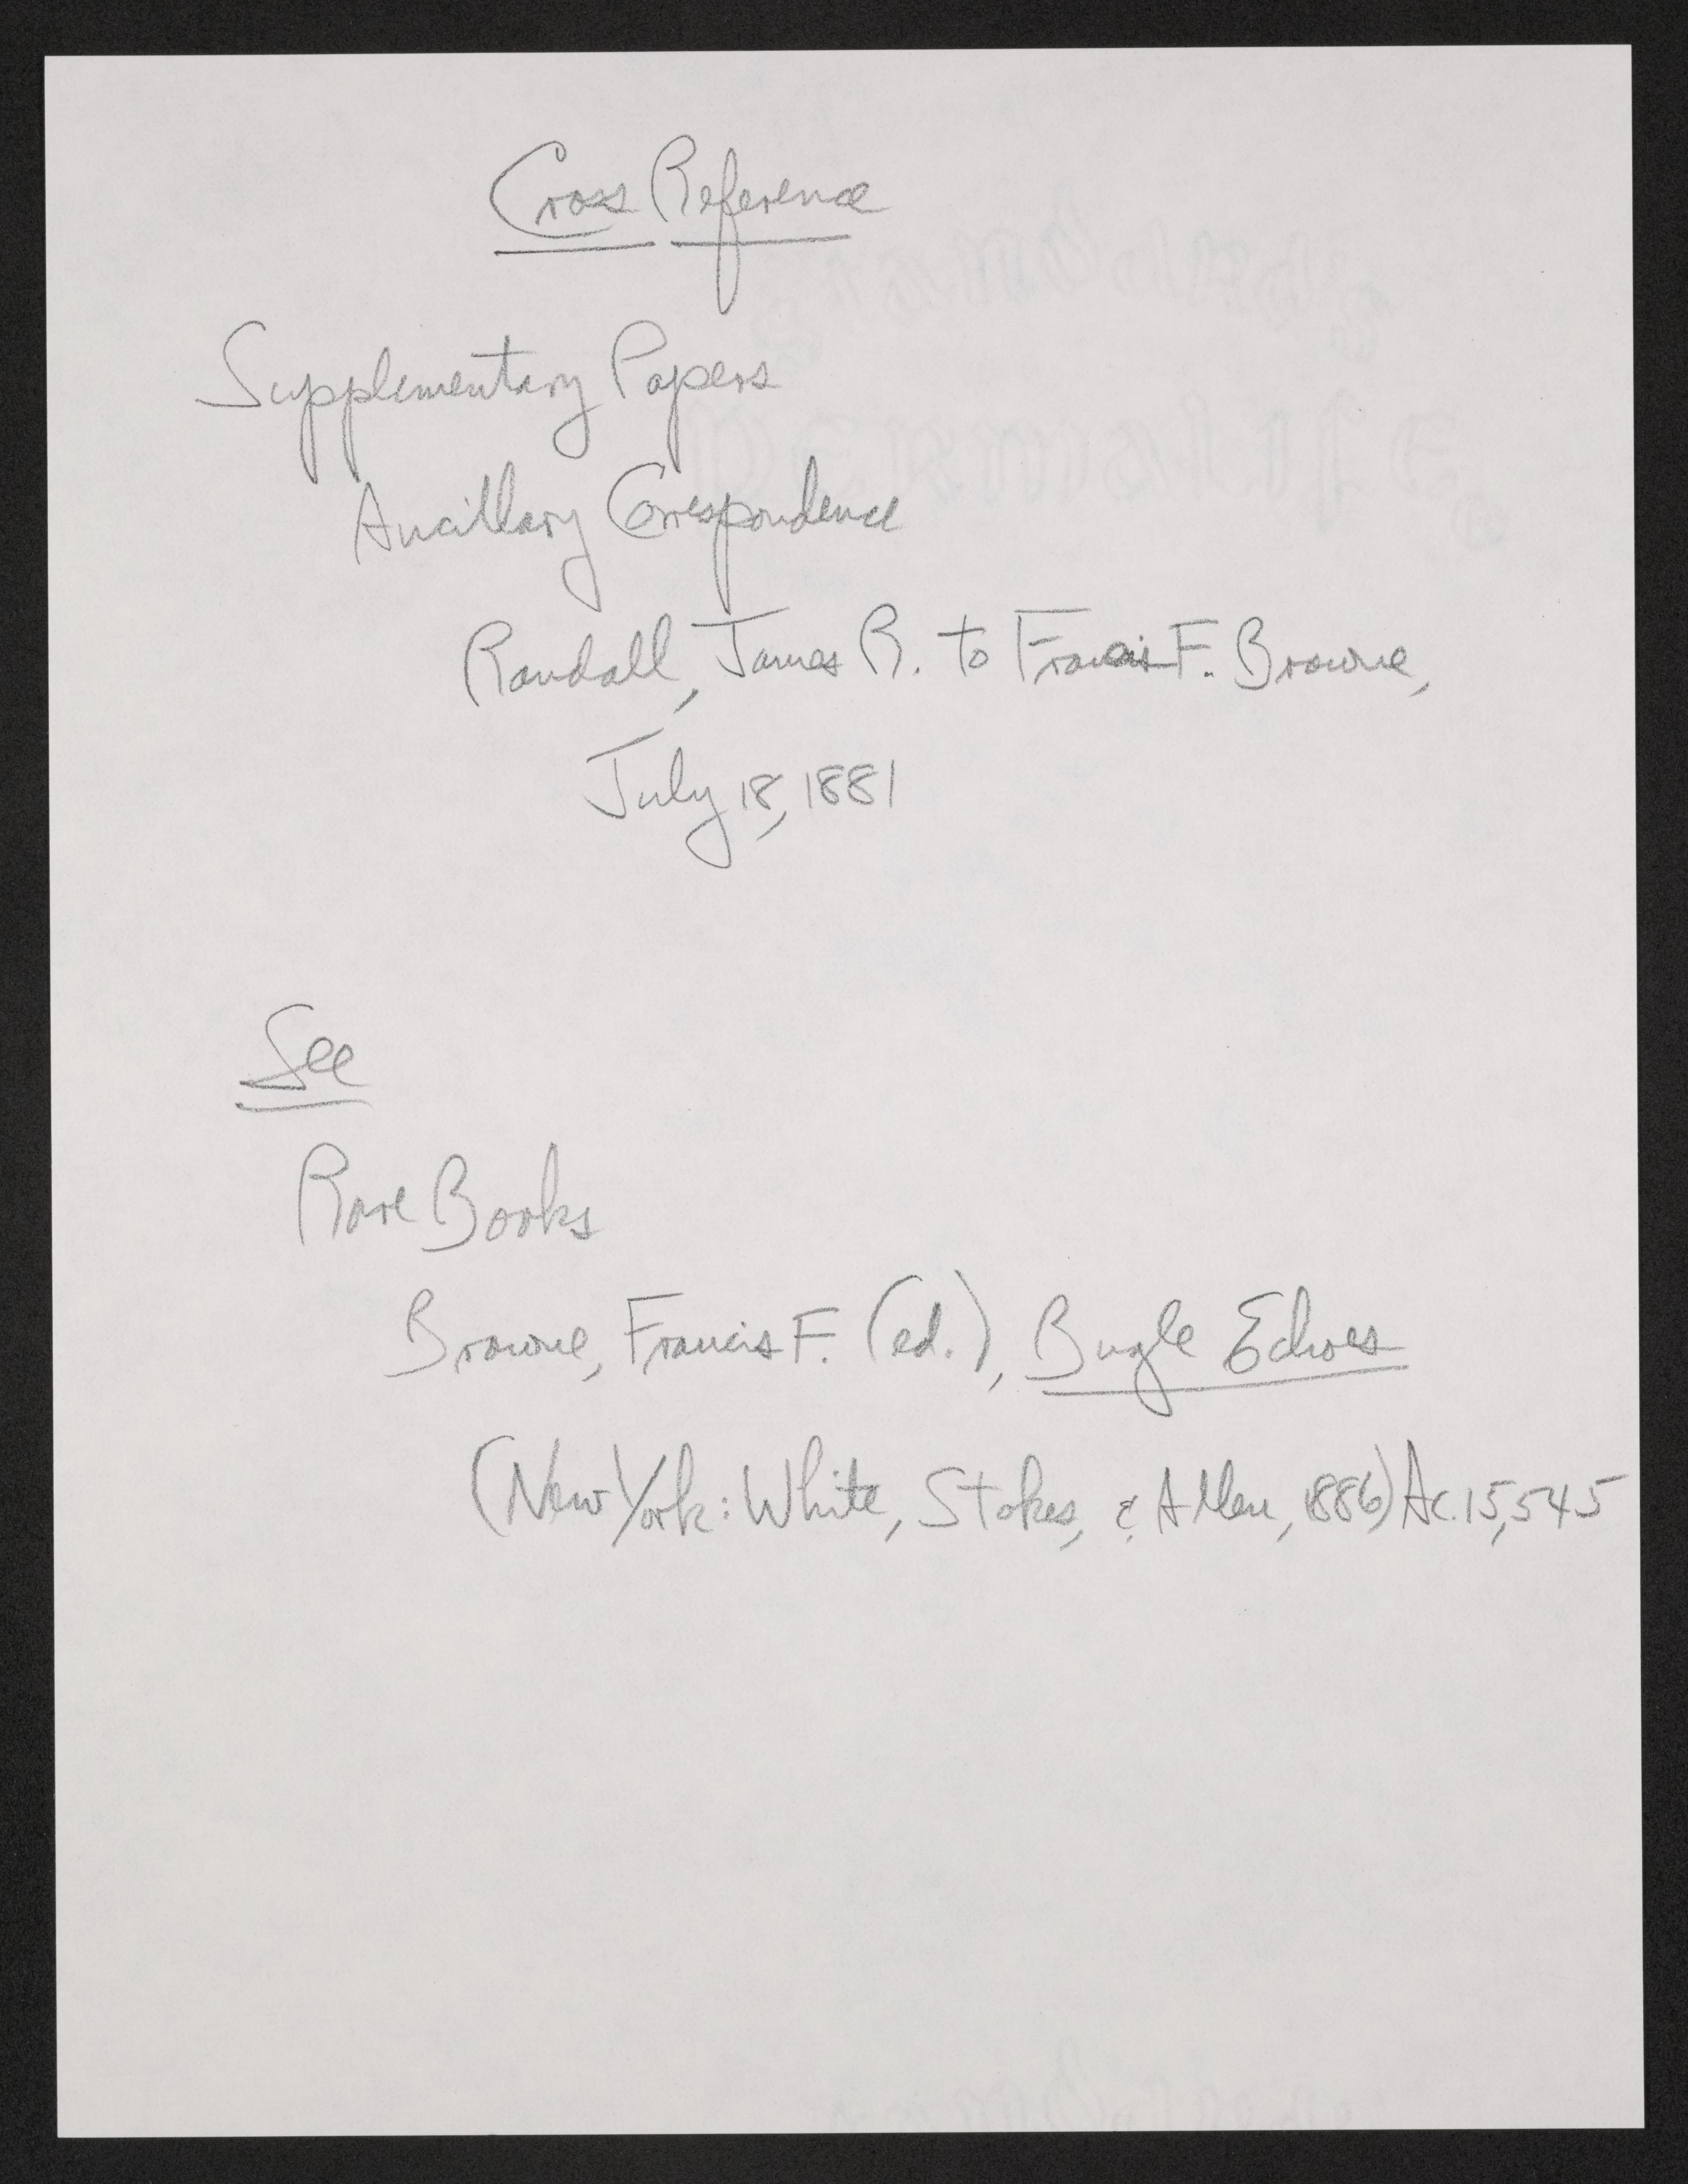 Cross Reference
Supplementary Papers
Ancillary Correspondence
Randall, James R. to Francis F. Browne,
July 18, 1881
See
Rare Books
Browne, Francis F. (ed.), Bugle Echoes
(New York: White, Stokes, & Allen, 1886) Ac. 15,545